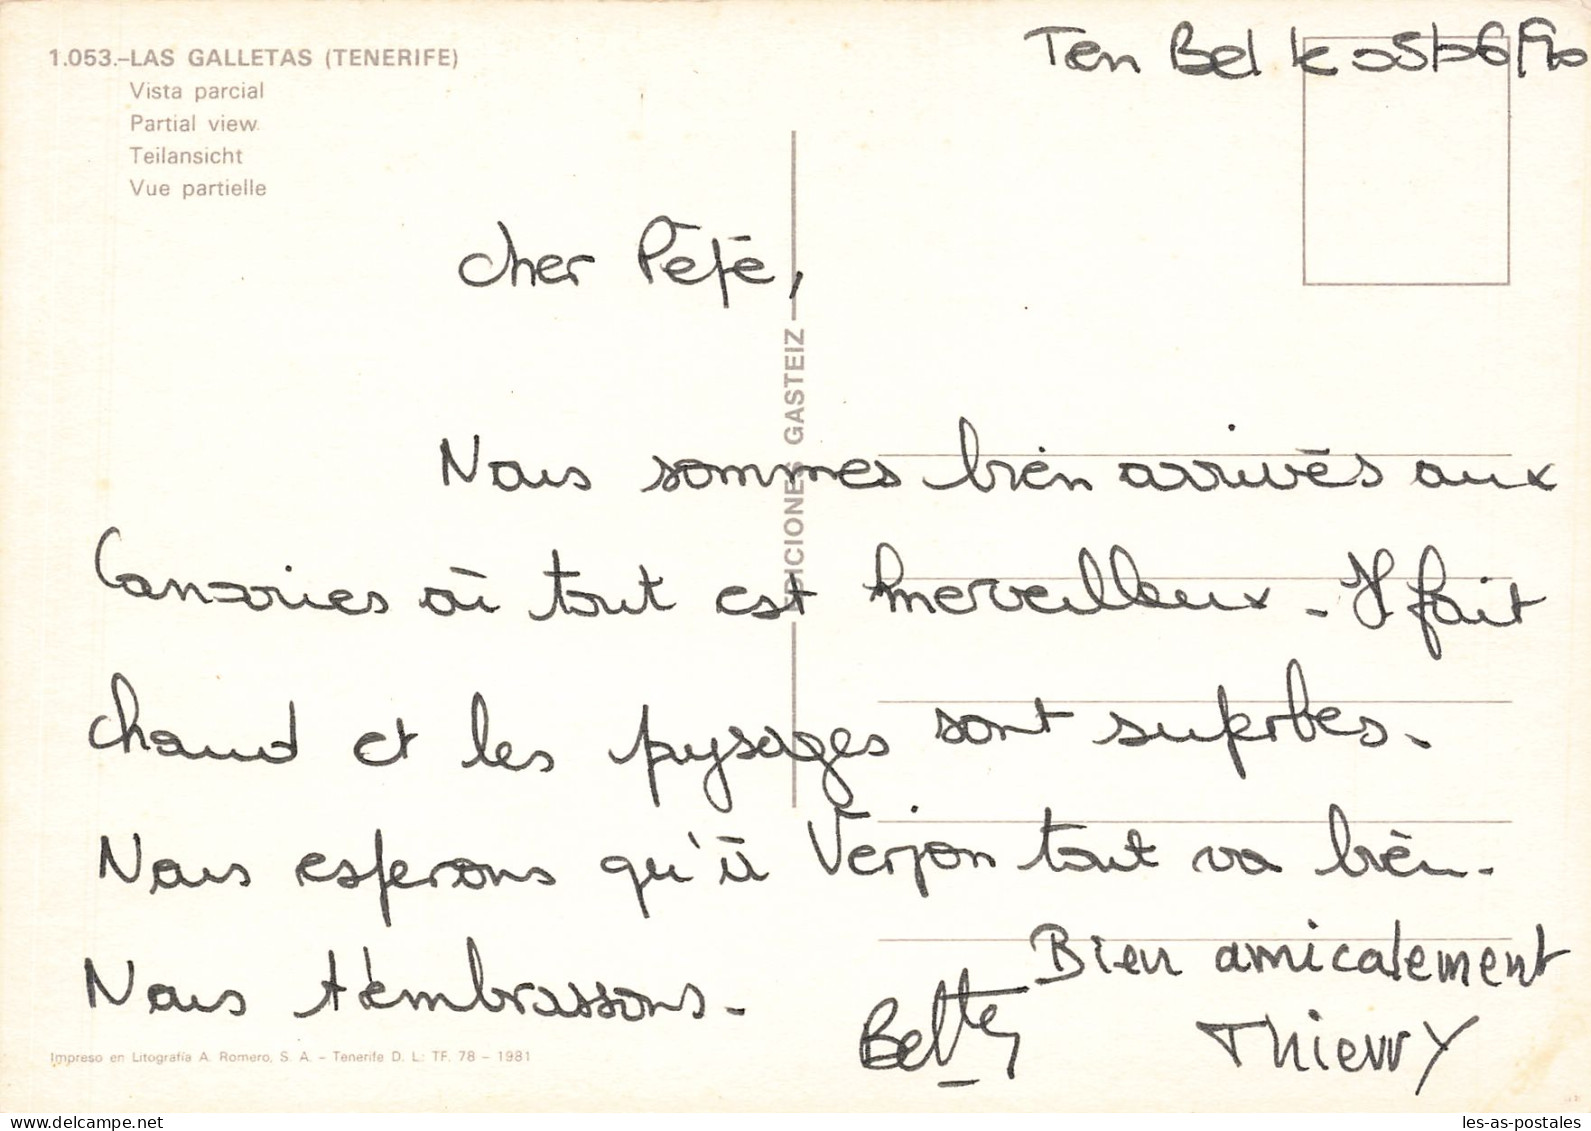 1.053.-LAS GALLETAS (TENERIFE)
Vista parcial
Partial view
Teilansicht
Vue partielle
Ten Bel le 05/06/90
Cher Pépé,
EDICIONES GASTEIZ
Nous sommes bien arrivés aux
Canaries où tout est merveilleux - Il fait
chaud et les paysages sont superbes.
Nous esperons qu'à Verjon tout va bien -
Nous t'embrassons -
Bien amicalement
Thierry
Impreso en Litografía A. Romero, S. A. - Tenerife D. L: TF. 78 - 1981
les-as-postales